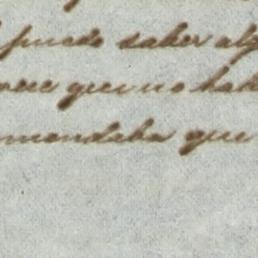 puedo saber alg
que no hab
mendaba que